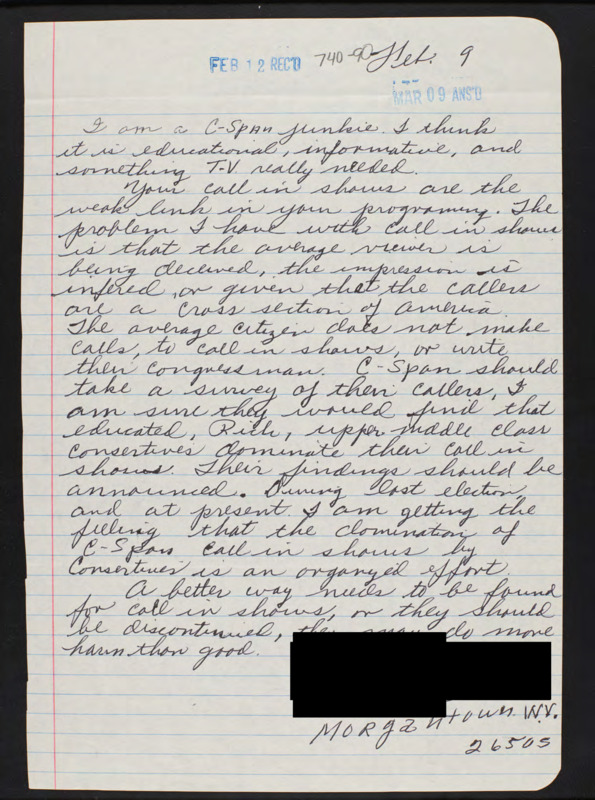 FEB 12 REC'D 740-90 Feb. 9
MAR 09 ANS'D
I am a C-Span junkie. I think
it is educational, informative, and
something T-V really needed.
Your call in shows are the
weak link in your programing. The
problem I have with call in shows
is that the average viewer is
being deceived, the impression is
infered, or given that the callers
are a cross section of America.
The average citizen does not make
calls, to call in shows, or write
their congressman. C-Span should
take a survey of their callers, I
am sure they would find that
educated, Rich, upper middle class
consertives dominate their call in
shows. Their findings should be
announced. During last election,
and at present I am getting the
filling that the domination of
C-Span call in shows by
Consertives is an organyed effort.
A better way needs to be found
for call in shows, or they should
be discontinued, do more
harm than good.
Morgantown W.V.
26505